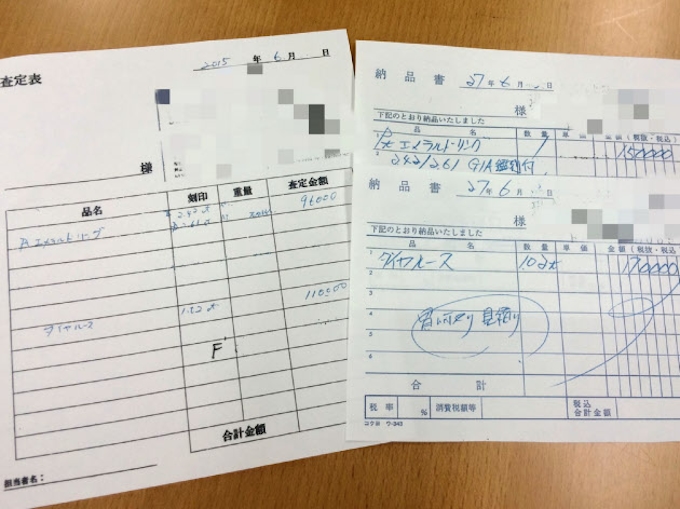 2015 年 6 月 日
査定表
様
品名 刻印 重量 査定金額
Pt エメラルドリング 2.42ct 96000
ダイヤルース 1.02ct 110000
F
合計金額
担当者名：
納品書 27年6月 日
様
下記のとおり納品いたしました
品名 数量 単価 金額(税抜・税込)
Pt エメラルドリング 1 150000
2 242/261 GIA鑑別付
納品書 27年6月 日
様
下記のとおり納品いたしました
品名 数量 単価 金額(税抜・税込)
1 ダイヤルース 102ct 170000
2
3
4 見積り
5
6
合計
税率 % 消費税額等 税込合計金額
コクヨ ウ-343